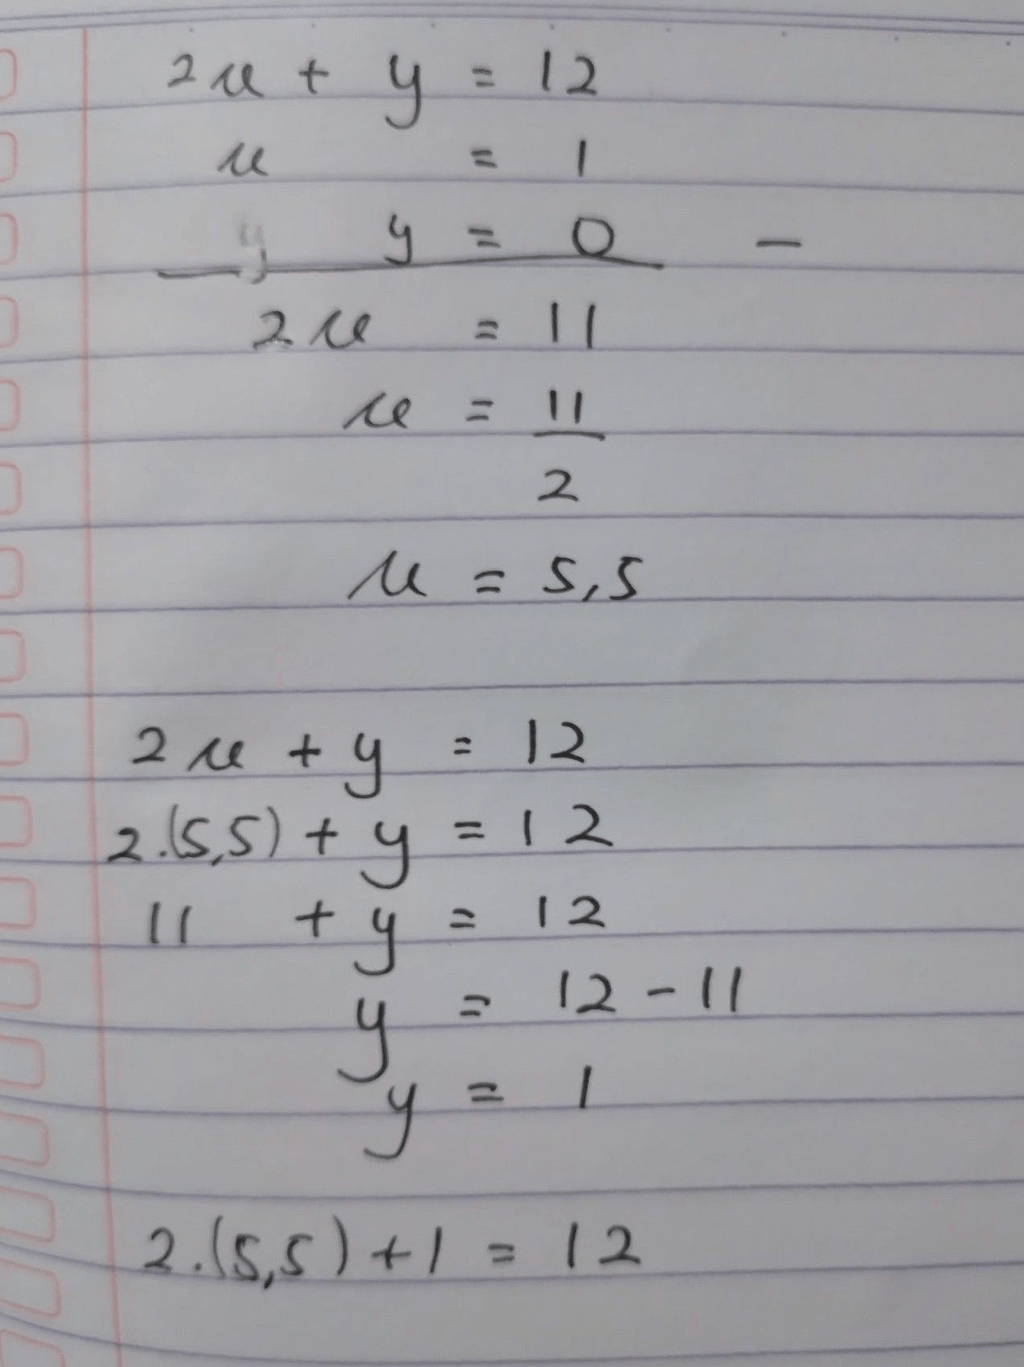 2x + y = 12
x = 1
y y = 0 -
2x = 11
x = 11
2
x = 5,5
2x + y = 12
2.(5,5) + y = 12
11 + y = 12
y = 12 - 11
y = 1
2.(5,5) + 1 = 12